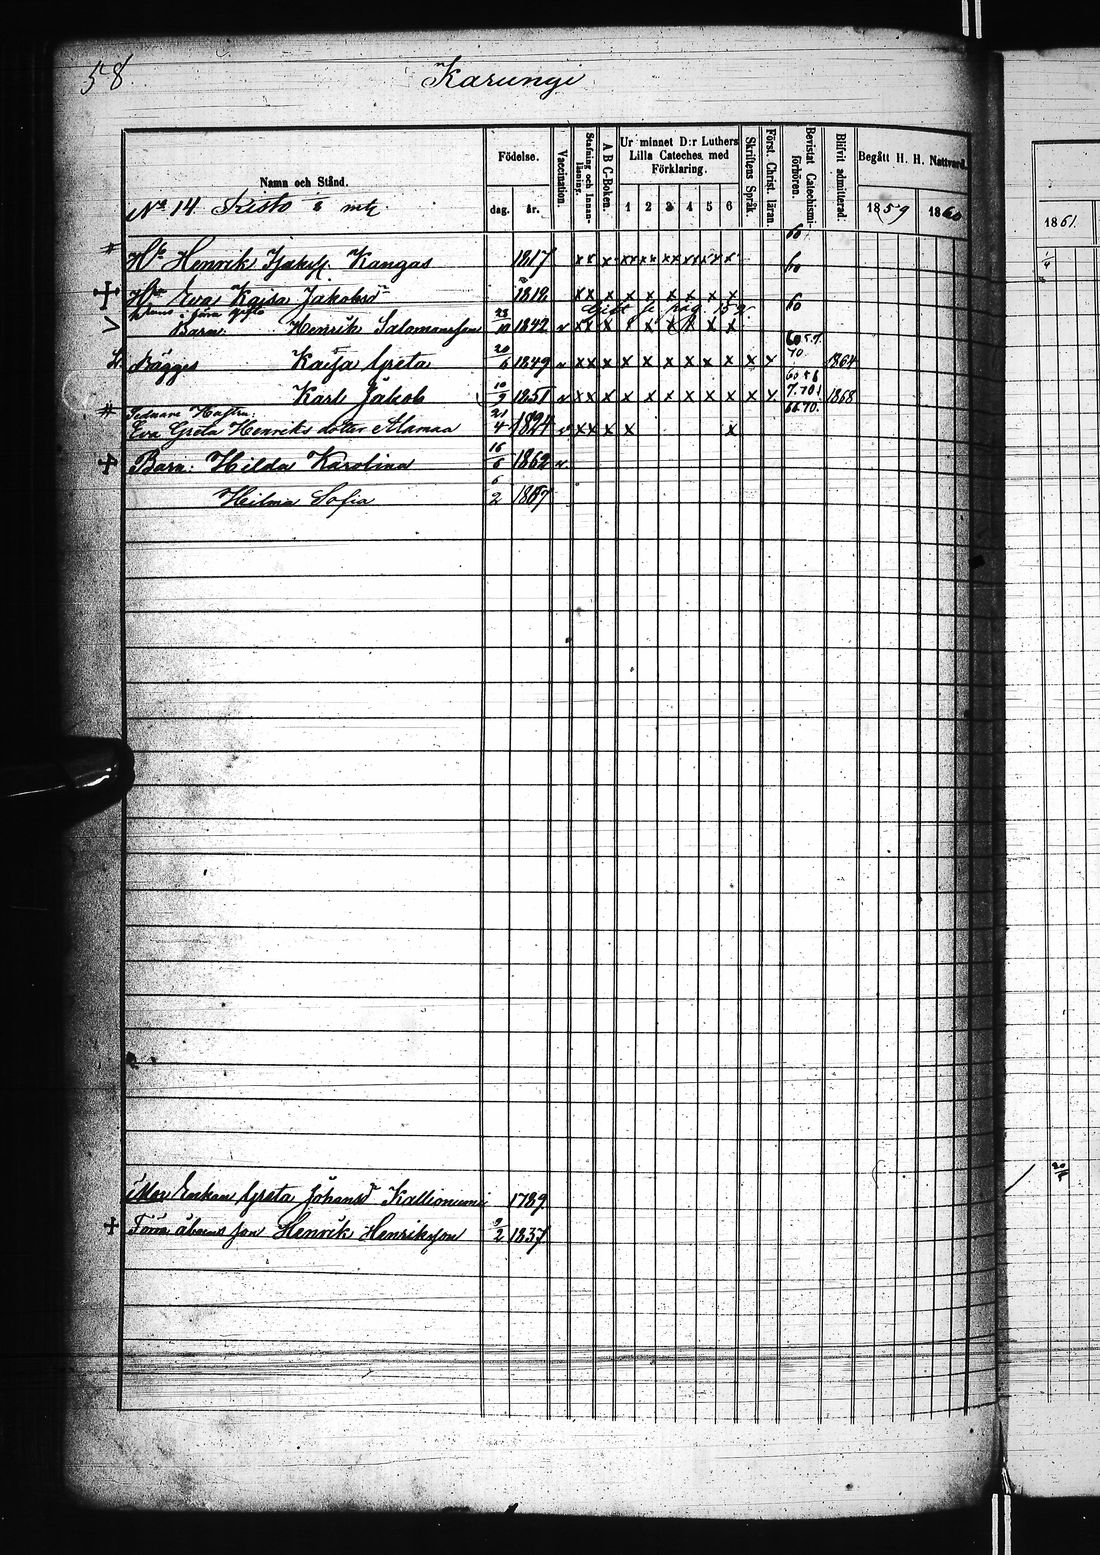 58
Karungi
Namn och Stånd.
Födelse.
dag. år.
Vaccination.
Stafning och Innanläsning.
A B C-Boken.
Ur minnet D:r Luthers Lilla Cateches. med Förklaring.
1 2 3 4 5 6
Skriftens Språk.
Förs. Christ. läran.
Bevistat Catechismiförhören.
Blifvit admitterad.
Begått H. H. Nattvard.
1859 1860
1861
No 14 Kristo mtl
Henrik Kangas 1817 x x x x x x x x x x x x 60
Eva Kajsa Jakobsdr 1812 x x x x x x x x x 60
Hans i förra gifte
Gift se pag. 152
Barn: Henrik Salomonsson 23/10 1842 v x x x x x x x x 60
Bägges Kajsa Greta 20/6 1849 v x x x x x x x x x x x 70 1864
Karl Jakob 10/9 1851 v x x x x x x x x x x x 1868
Sednare Hustru:
Eva Greta Henriks dotter Alamaa 21/4 1824 v x x x x x 70.
Barn: Hilda Karolina 16/6 1862 v
Hilma Sofia 6/2 1867
Mor Enkan Greta Johansdr 1789
+ Förra åboens son Henrik Henriksson 9/2 1837